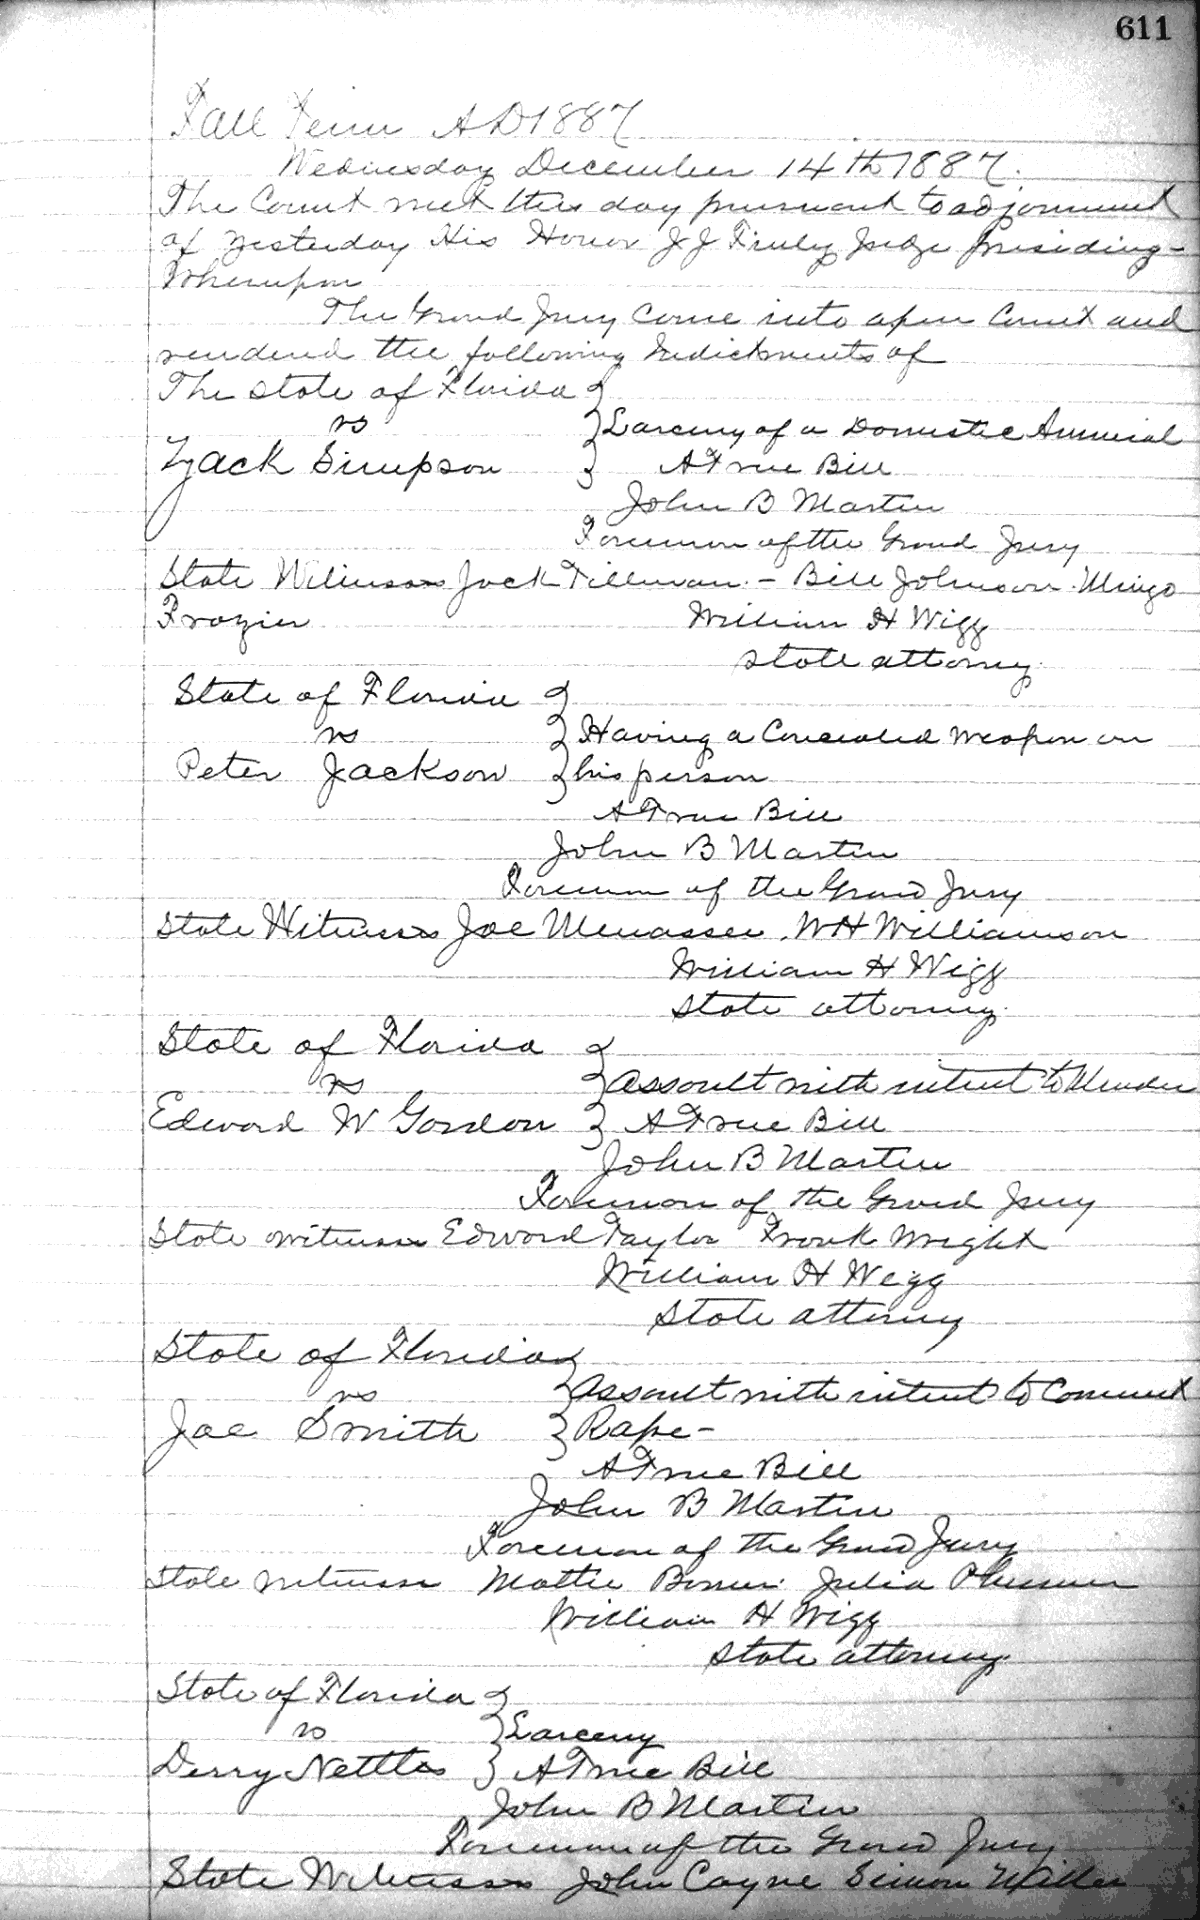 611
Fall Term AD 1887
Wednesday December 14th 1887.
The Court met this day pursuant to adjornment
of yesterday His Honor J J Finley Judge presiding -
Wherupon
The Grand Jury Come into open Court and
rendered the following Indictments of
The State of Florida
vs
Larceny of a Domestic Animal
Zack Simpson
A True Bill
John B Martin
Foreman of the Grand Jury
State Witnesses Jack Tillman - Bill Johnson Mingo
Frozier William H Wigg
State attorney.
State of Florida
vs Having a Concealed weapon on
Peter Jackson his person
A True Bill
John B Martin
Foreman of the Grand Jury
State Witnesses Joe Menassee . W H Williamson
William H Wigg
State attorney.
State of Florida
vs Assault with intent to Murder
Edward W Gordon A True Bill
John B Martin
Foreman of the Grand Jury
State witnesses Edward Taylor Frank Wright
William H Wigg
State attorney
State of Florida
vs Assault with intent to Commit
Joe Smith Rape -
A True Bill
John B Martin
Foreman of the Grand Jury
State witnesses Mattie Julia Plummer
William H Wigg
State attorney.
State of Florida
vs Larceny
Derry Nettles A True Bill
John B Martin
Foreman of the Grand Jury
State Witnesses John Cayne Simon Miller